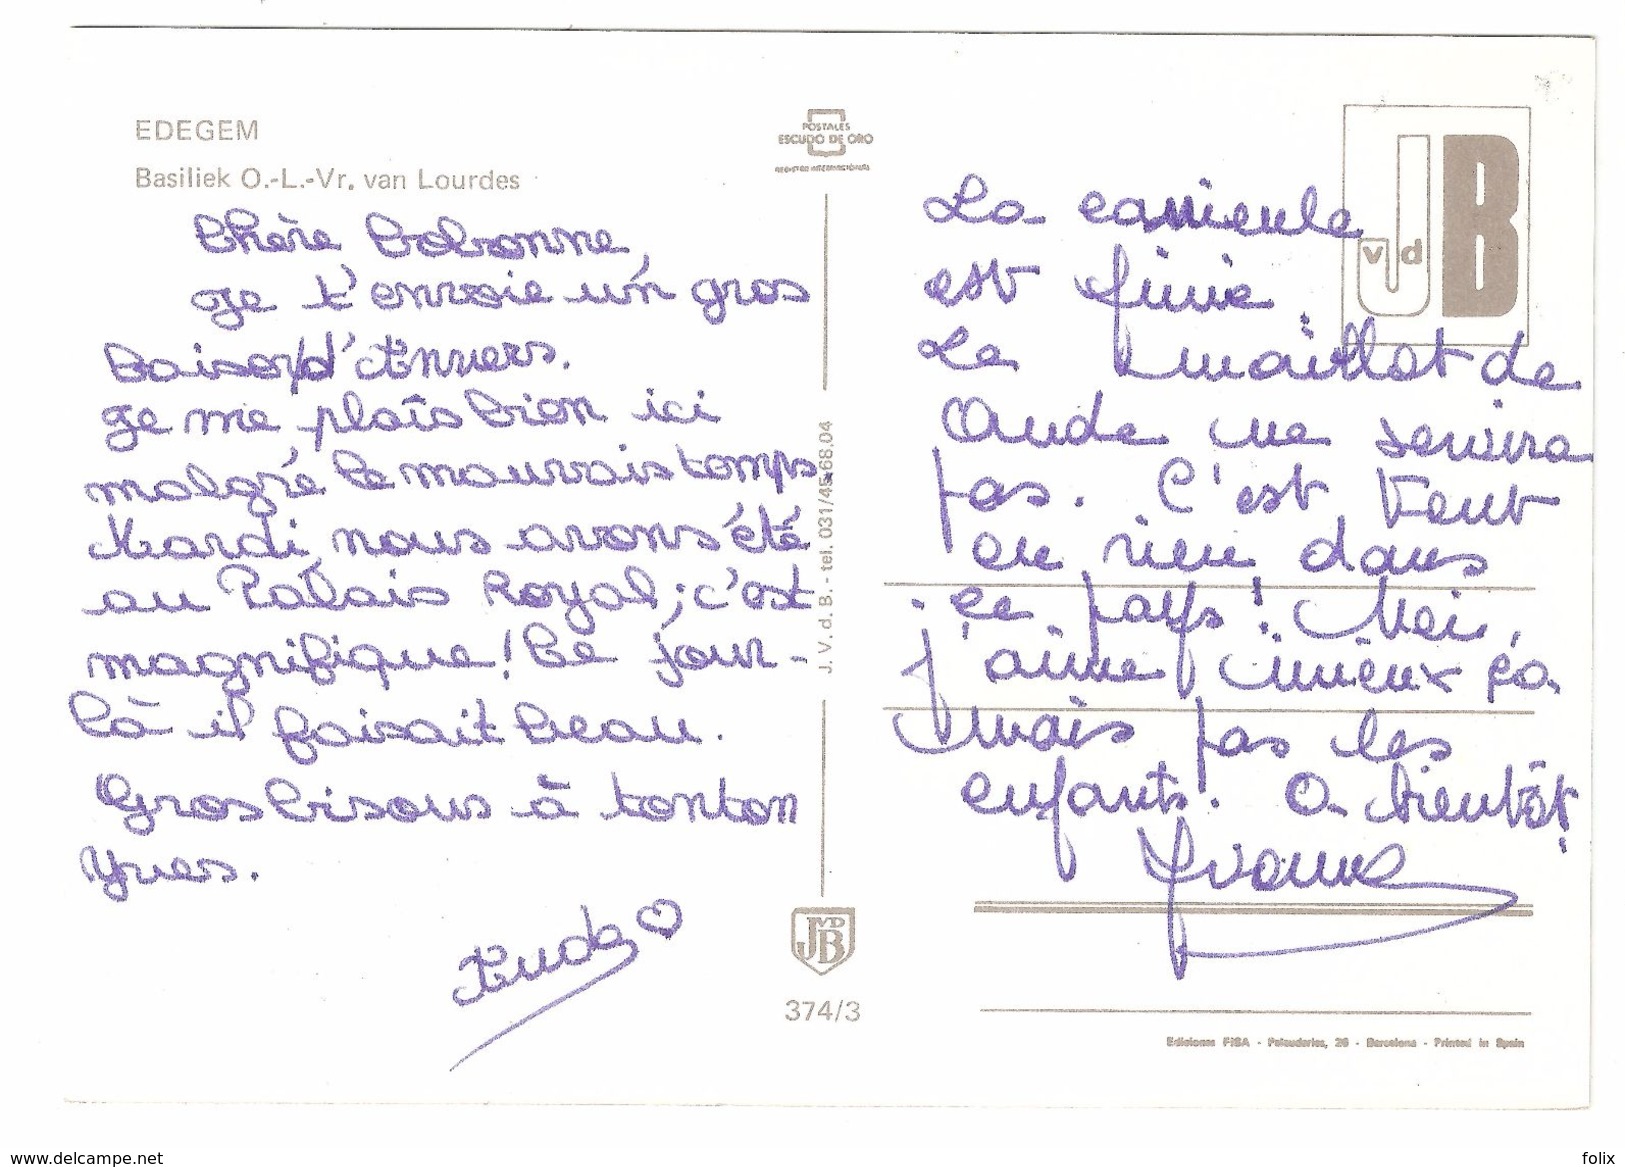 EDEGEM
Basiliek O.-L.-Vr. van Lourdes
Chère Bobonne,
Je t'envoie un gros
baiser d'Anvers.
Je me plais bien ici
malgré le mauvais temps.
Mardi, nous avons été
au Palais Royal; c'est
magnifique! Ce jour-
là il faisait beau.
Gros bisous à tonton
Yves.
Aude
POSTALES
ESCUDO DE ORO
REGISTRO INTERNACIONAL
J. V. d. B. - tel. 031/45.68.04
JVDB
374/3
JvdB
La canicule
est finie.
Le maillot de
Aude ne servira
pas. C'est tout
ou rien dans
ce pays! Moi,
j'aime mieux ça
mais pas les
enfants. A bientôt
Yvonne
Ediciones FISA - Palaudarias, 26 - Barcelona - Printed in Spain
www.delcampe.net
folix